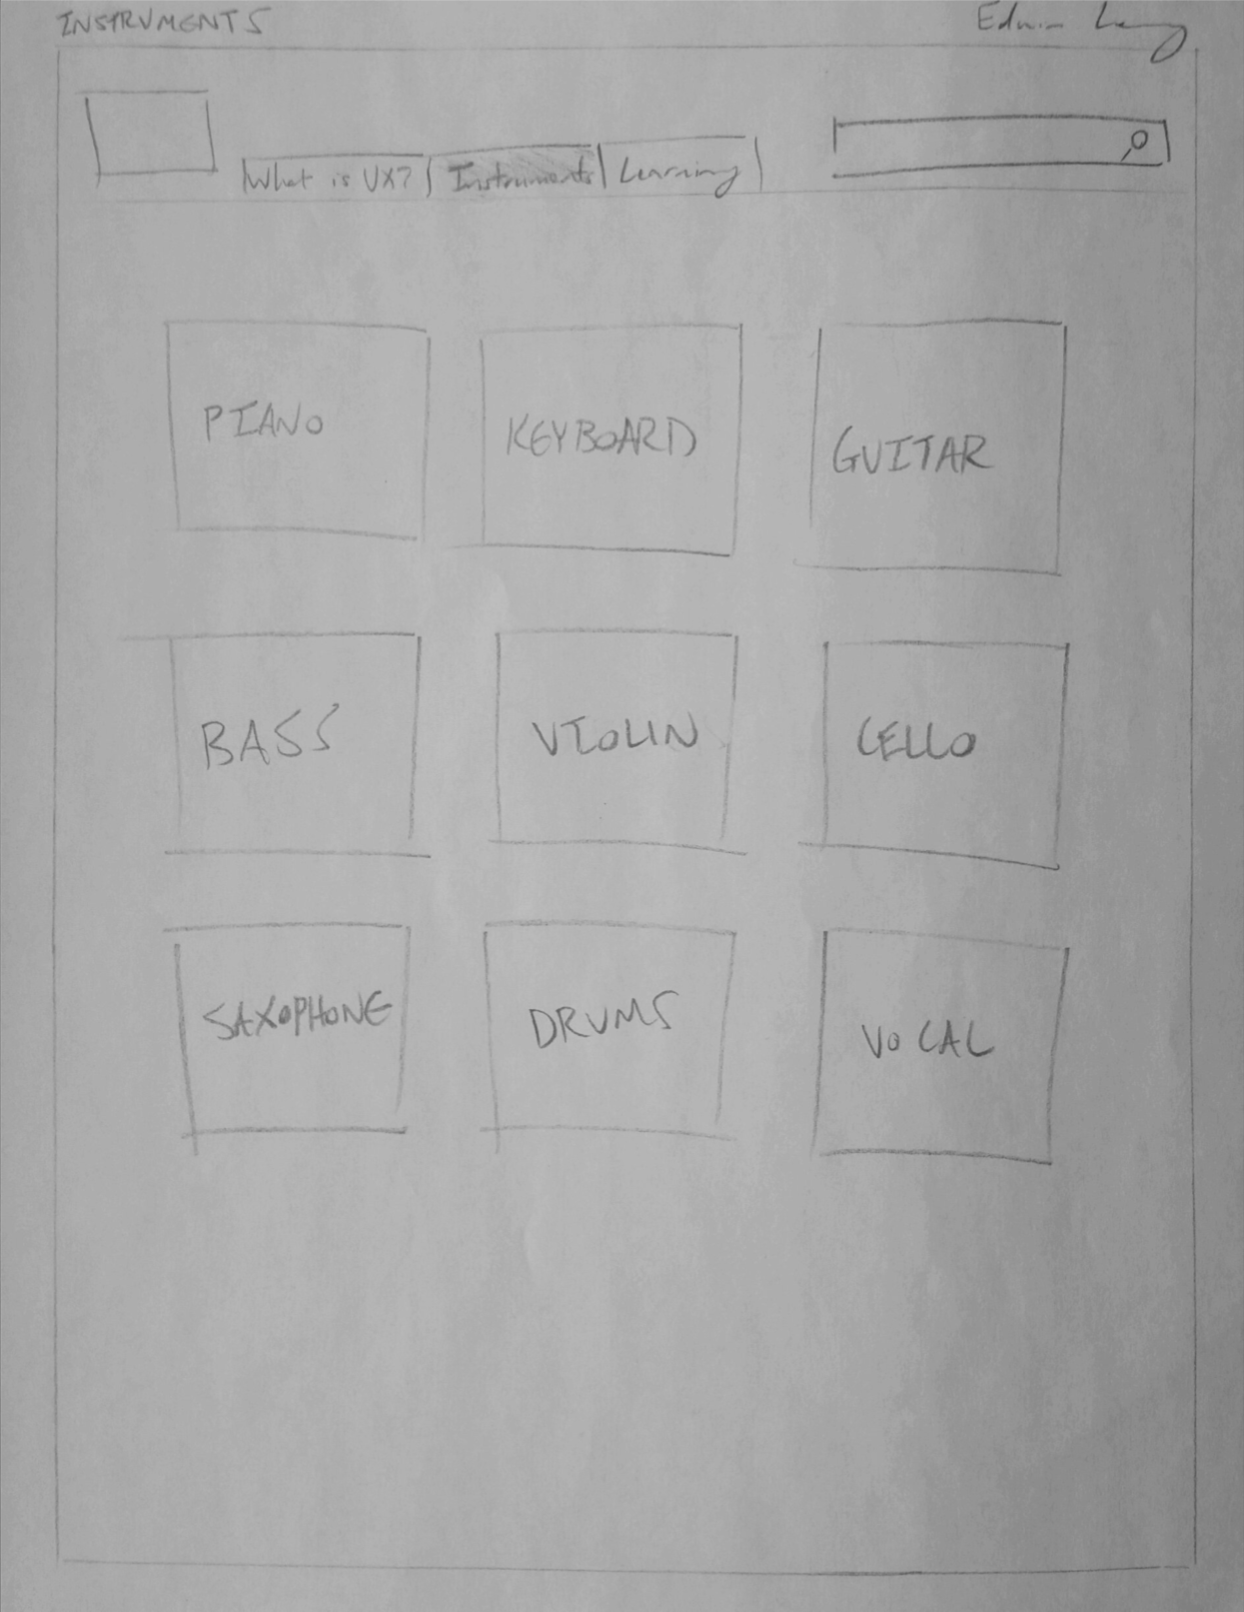 INSTRUMENTS
Edwin
What is UX? Instruments Learning
PIANO KEYBOARD GUITAR
BASS VIOLIN CELLO
SAXOPHONE DRUMS VOCAL